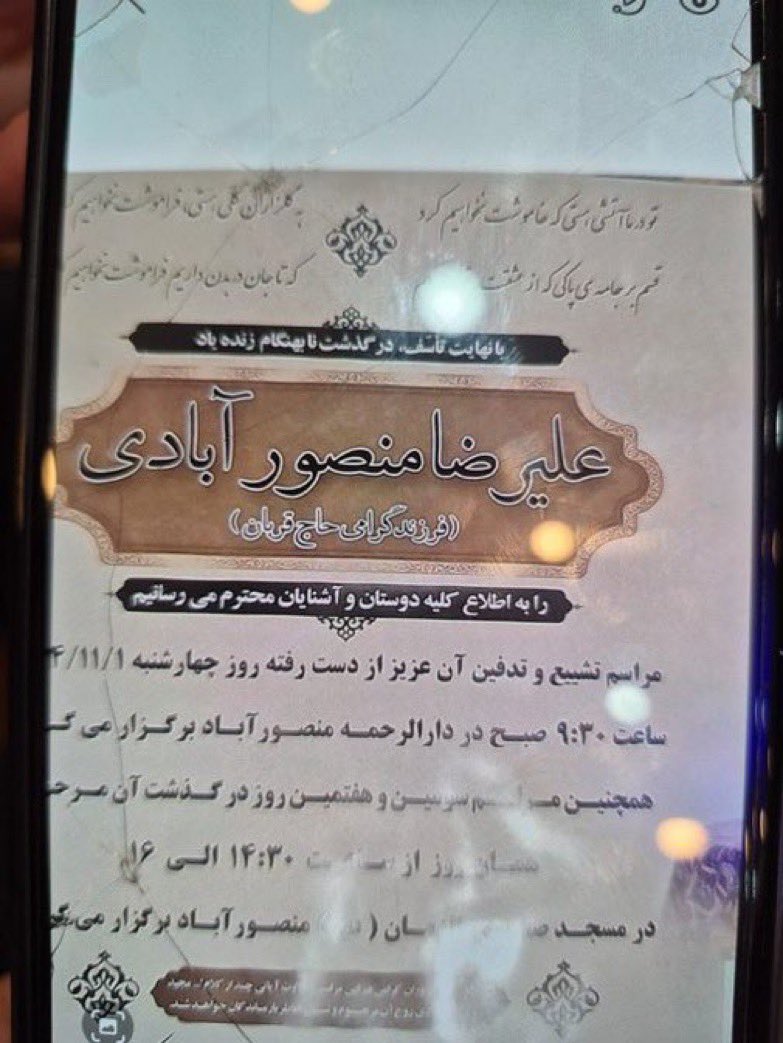 تو در ما آتشی هستی که خاموشت نخواهیم کرد
به گلزاران گلی هستی، فراموشت نخواهیم
قسم بر جامه ی پاکی که از عشقت
که تا جان در بدن داریم فراموشت نخواهیم
با نهایت تأسف، درگذشت نابهنگام زنده یاد
علیرضا منصورآبادی
(فرزند گرامی حاج قربان)
را به اطلاع کلیه دوستان و آشنایان محترم می رسانیم
مراسم تشییع و تدفین آن عزیز از دست رفته روز چهارشنبه ۴/۱۱/۱
ساعت ۹:۳۰ صبح در دارالرحمه منصورآباد برگزار می گ
همچنین مراسم سومین و هفتمین روز درگذشت آن مرح
همان روز از ساعت ۱۴:۳۰ الی ۱۶
در مسجد صاحب الزمان ( ) منصورآباد برگزار می گ
آیاتی چند از کلام ا... مجید
بازماندگان خواهید شد.